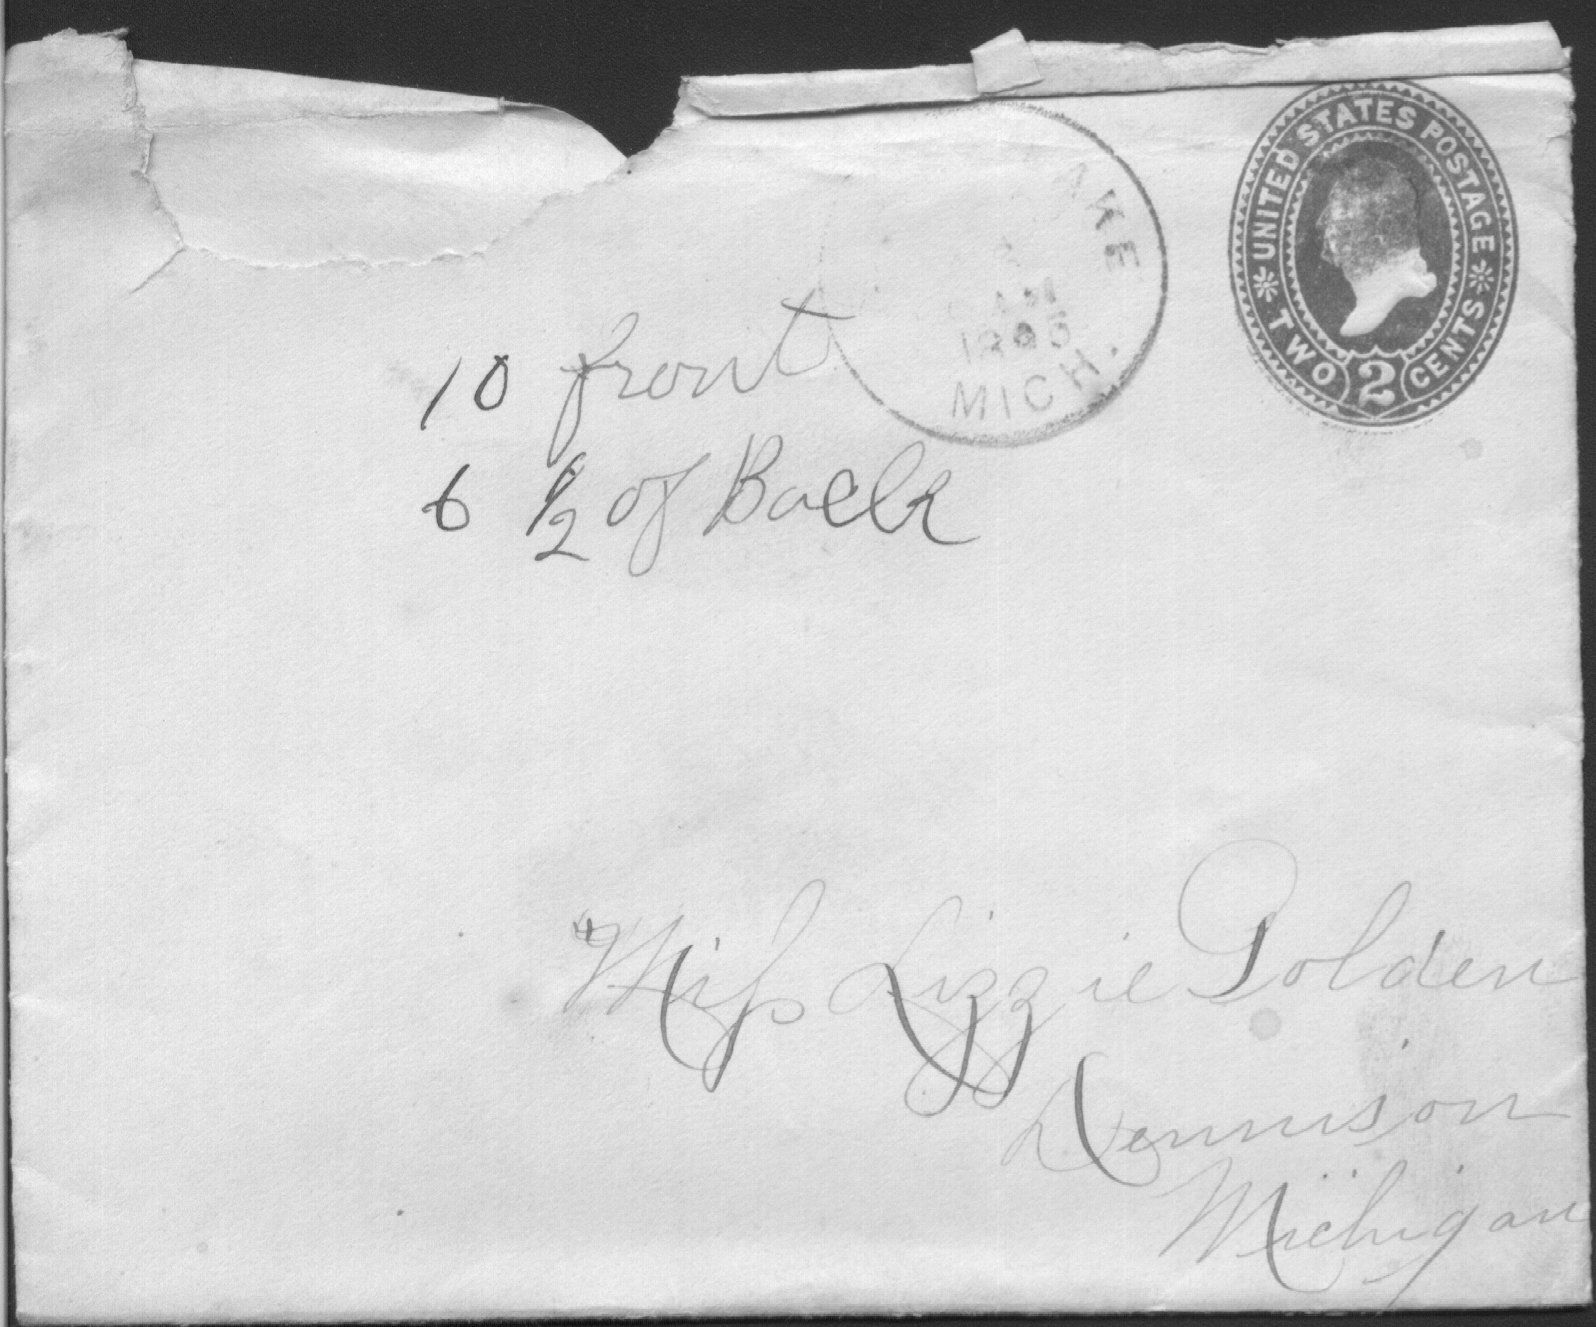 UNITED STATES POSTAGE
TWO 2 CENTS
AKE
AM
MICH.
10 front
6 1/2 of Back
Miss Lizzie Golden
Dennison
Michigan